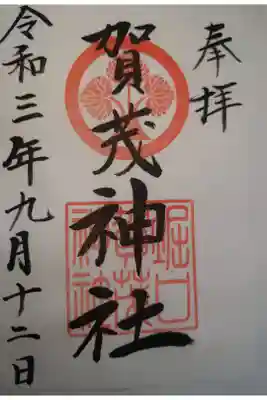 奉拝
賀茂神社
令和三年九月十二日